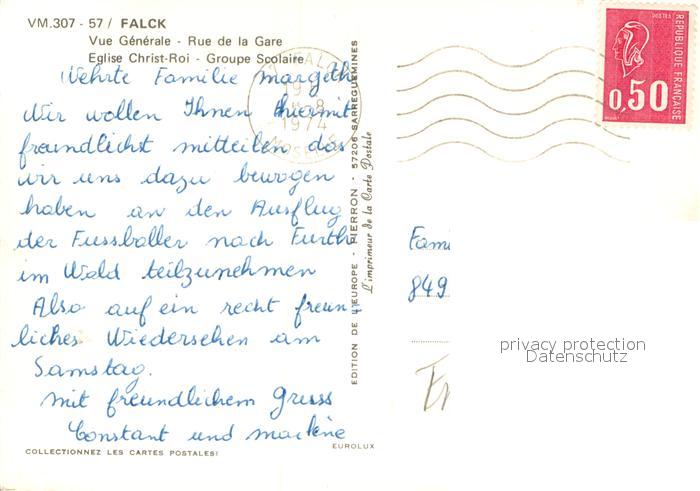 VM.307 - 57 / FALCK
Vue Générale - Rue de la Gare
Eglise Christ-Roi - Groupe Scolaire
Wehrte Familie Margeth
Wir wollen Ihnen hiermit
freundlichst mitteilen das
wir uns dazu bewogen
haben an den Ausflug
der Fussballer nach Furth
im Wald teilzunehmen
Also auf ein recht freun
liches Wiedersehen am
Samstag.
mit freundlichem Gruss
Constant und Marlène
COLLECTIONNEZ LES CARTES POSTALES!
EUROLUX
EDITION DE L'EUROPE - PIERRON - 57206 SARREGUEMINES
L'imprimeur de la Carte Postale
FALCK
1974
MOSELLE
POSTES
REPUBLIQUE FRANÇAISE
0,50
Fami
849
privacy protection
Datenschutz